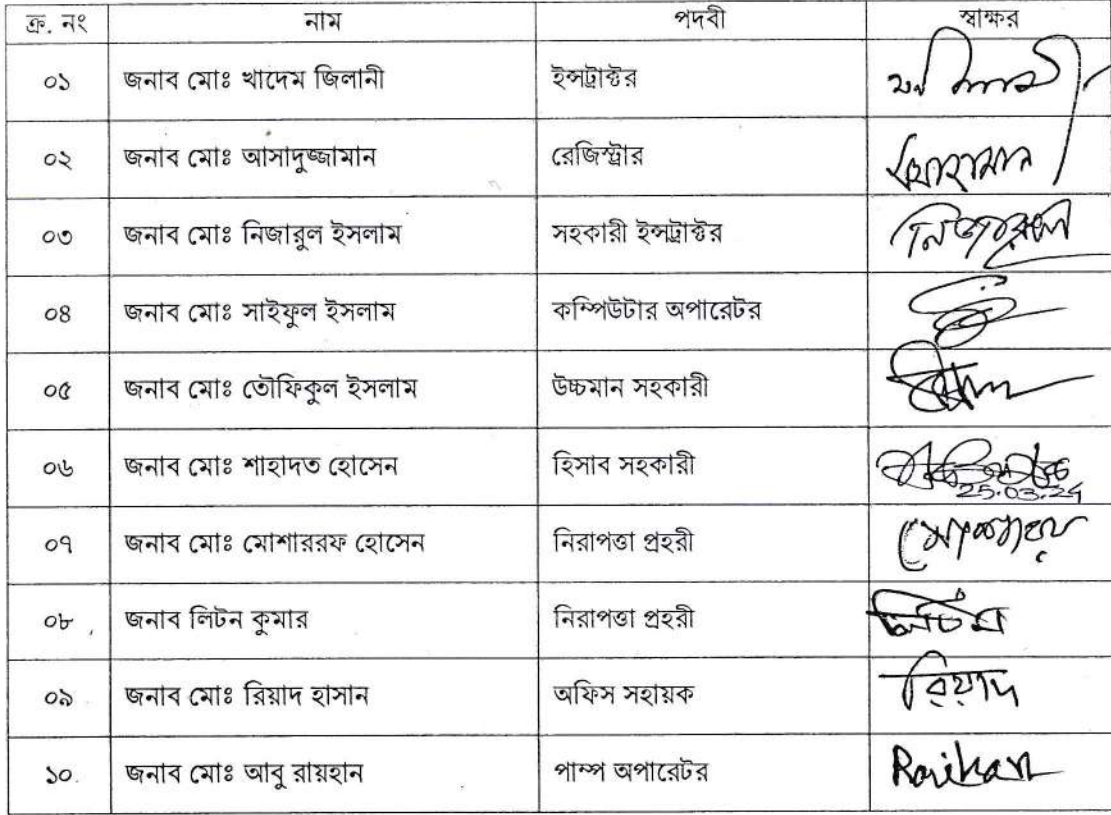 ক্র. নং নাম পদবী স্বাক্ষর
০১ জনাব মোঃ খাদেম জিলানী ইন্সট্রাক্টর
০২ জনাব মোঃ আসাদুজ্জামান রেজিস্ট্রার
০৩ জনাব মোঃ নিজারুল ইসলাম সহকারী ইন্সট্রাক্টর
০৪ জনাব মোঃ সাইফুল ইসলাম কম্পিউটার অপারেটর
০৫ জনাব মোঃ তৌফিকুল ইসলাম উচ্চমান সহকারী
০৬ জনাব মোঃ শাহাদত হোসেন হিসাব সহকারী
25.03.24
০৭ জনাব মোঃ মোশাররফ হোসেন নিরাপত্তা প্রহরী
০৮ জনাব লিটন কুমার নিরাপত্তা প্রহরী লিটন
০৯ জনাব মোঃ রিয়াদ হাসান অফিস সহায়ক রিয়াদ
১০. জনাব মোঃ আবু রায়হান পাম্প অপারেটর Raihan